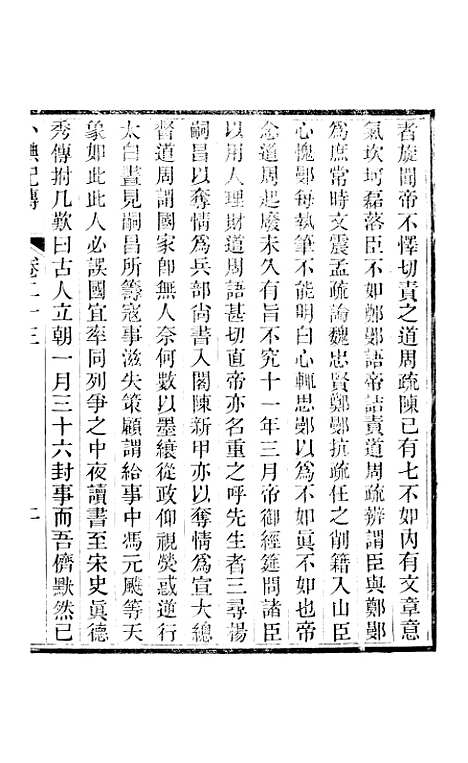 者旋聞帝不懌切責之道周疏陳已有七不如內有文章意
氣坎坷磊落臣不如鄭鄤語帝詰責道周疏辨謂臣與鄭鄤
爲庶常時文震孟疏論魏忠賢鄭鄤抗疏任之削籍入山臣
心愧鄤每執筆不能明白心輒思鄤以爲不如眞不如也帝
念道周起廢未久有旨不究十一年三月帝御經筵問諸臣
以用人理財道周語甚切直帝亦名重之呼先生者三尋楊
嗣昌以奪情爲兵部尙書入閣陳新甲亦以奪情爲宣大總
督道周謂國家卽無人奈何數以墨縗從政仰視熒惑逆行
太白晝見嗣昌所籌寇事滋失策顧謂給事中馮元飈等天
象如此此人必誤國宜率同列爭之中夜讀書至宋史眞德
秀傳拊几歎曰古人立朝一月三十六封事而吾儕默然已
小腆紀傳 卷二十三 二